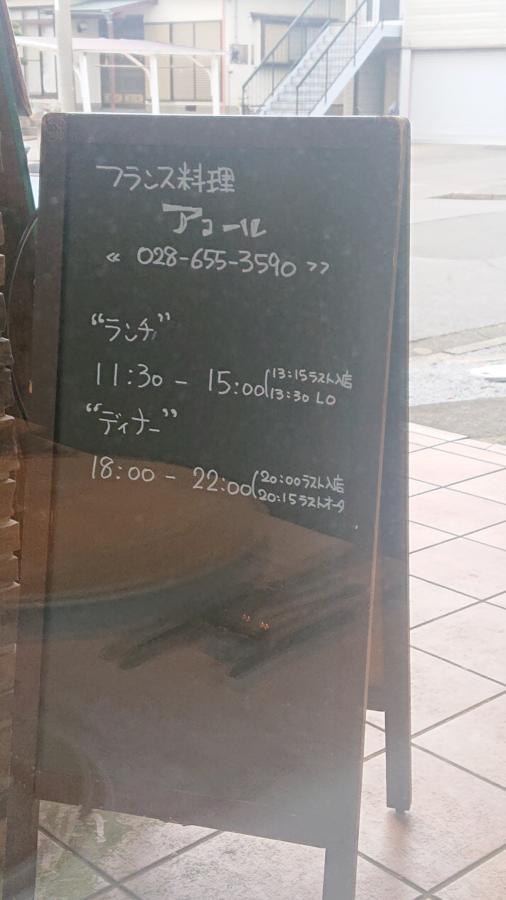 フランス料理
アコール
« 028-655-3590 »
“ランチ”
11:30 - 15:00(13:15ラスト入店
13:30 LO
“ディナー”
18:00 - 22:00(20:00ラスト入店
20:15ラストオータ